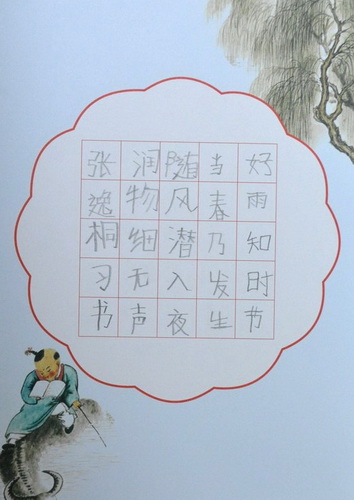 好雨知时节
当春乃发生
随风潜入夜
润物细无声
张逸桐习书